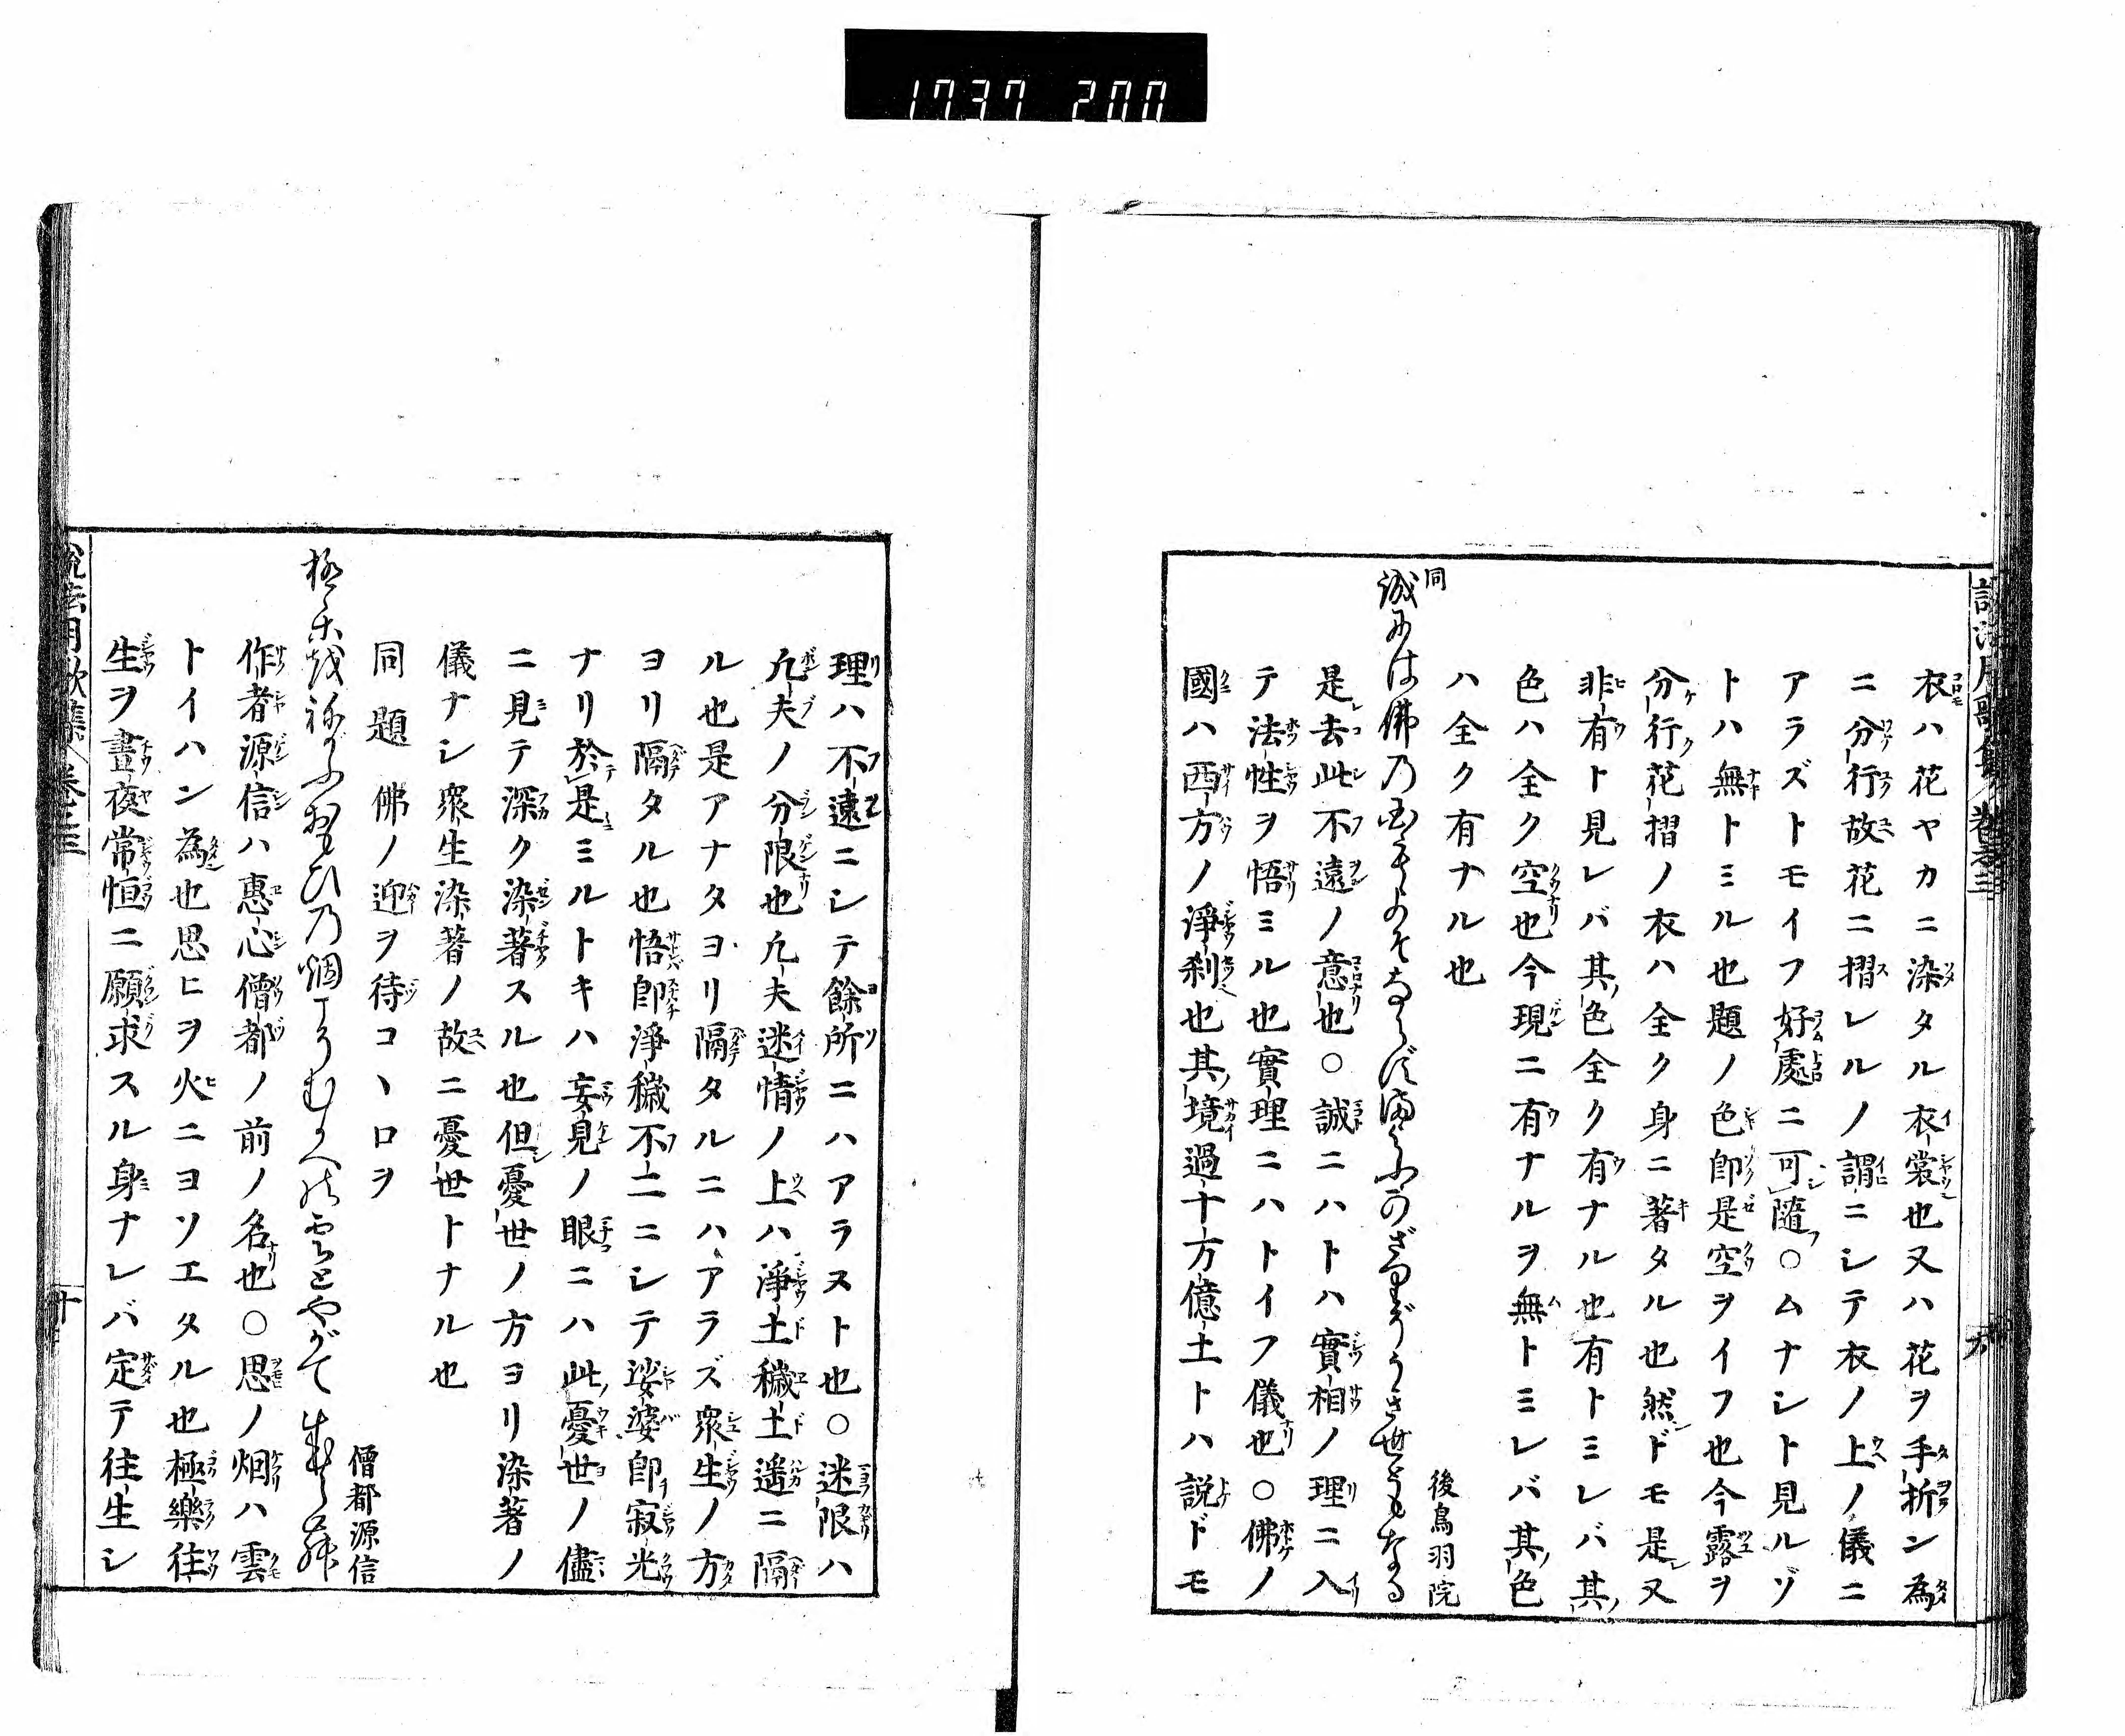 1737 200
衣ハ花ヤカニ染タル衣裳也又ハ花ヲ手折ン為
ニ分行故花ニ摺レルノ謂ニシテ衣ノ上ノ儀ニ
アラズトモイフ好處ニ可隨○ムナシト見ルゾ
トハ無トミル也題ノ色即是空ヲイフ也今露ヲ
分行花摺ノ衣ハ全ク身ニ著タル也然ドモ是又
非有ト見レバ其色全ク有ナル也有トミレバ其
色ハ全ク空也今現ニ有ナルヲ無トミレバ其色
ハ全ク有ナル也
同
後鳥羽院
誠には佛の
うき世ともなる
是去此不遠ノ意也○誠ニハトハ實相ノ理ニ入
テ法性ヲ悟ミル也實理ニハトイフ儀也○佛ノ
國ハ西方ノ淨刹也其境過十万億土トハ説ドモ
説法用歌集 卷之三
理ハ不遠ニシテ餘所ニハアラヌト也○迷限ハ
凢夫ノ分限也凢夫迷情ノ上ハ淨土穢土遥ニ隔
ル也是アナタヨリ隔タルニハアラズ衆生ノ方
ヨリ隔タル也悟即淨穢不二ニシテ娑婆即寂光
ナリ於是ミルトキハ妄見ノ眼ニハ此憂世ノ儘
ニ見テ深ク染著スル也但憂世ノ方ヨリ染著ノ
儀ナシ衆生染著ノ故ニ憂世トナル也
同題佛ノ迎ヲ待コヽロヲ
僧都源信
おもひの烟
むかへの雲とやがて
作者源信ハ惠心僧都ノ前ノ名也○思ノ烟ハ雲
トイハン為也思ヒヲ火ニヨソエタル也極樂往
生ヲ晝夜常恒ニ願求スル身ナレバ定テ往生シ
説法用歌集 卷之三
十